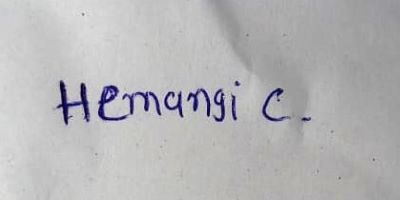 Hemangi C.